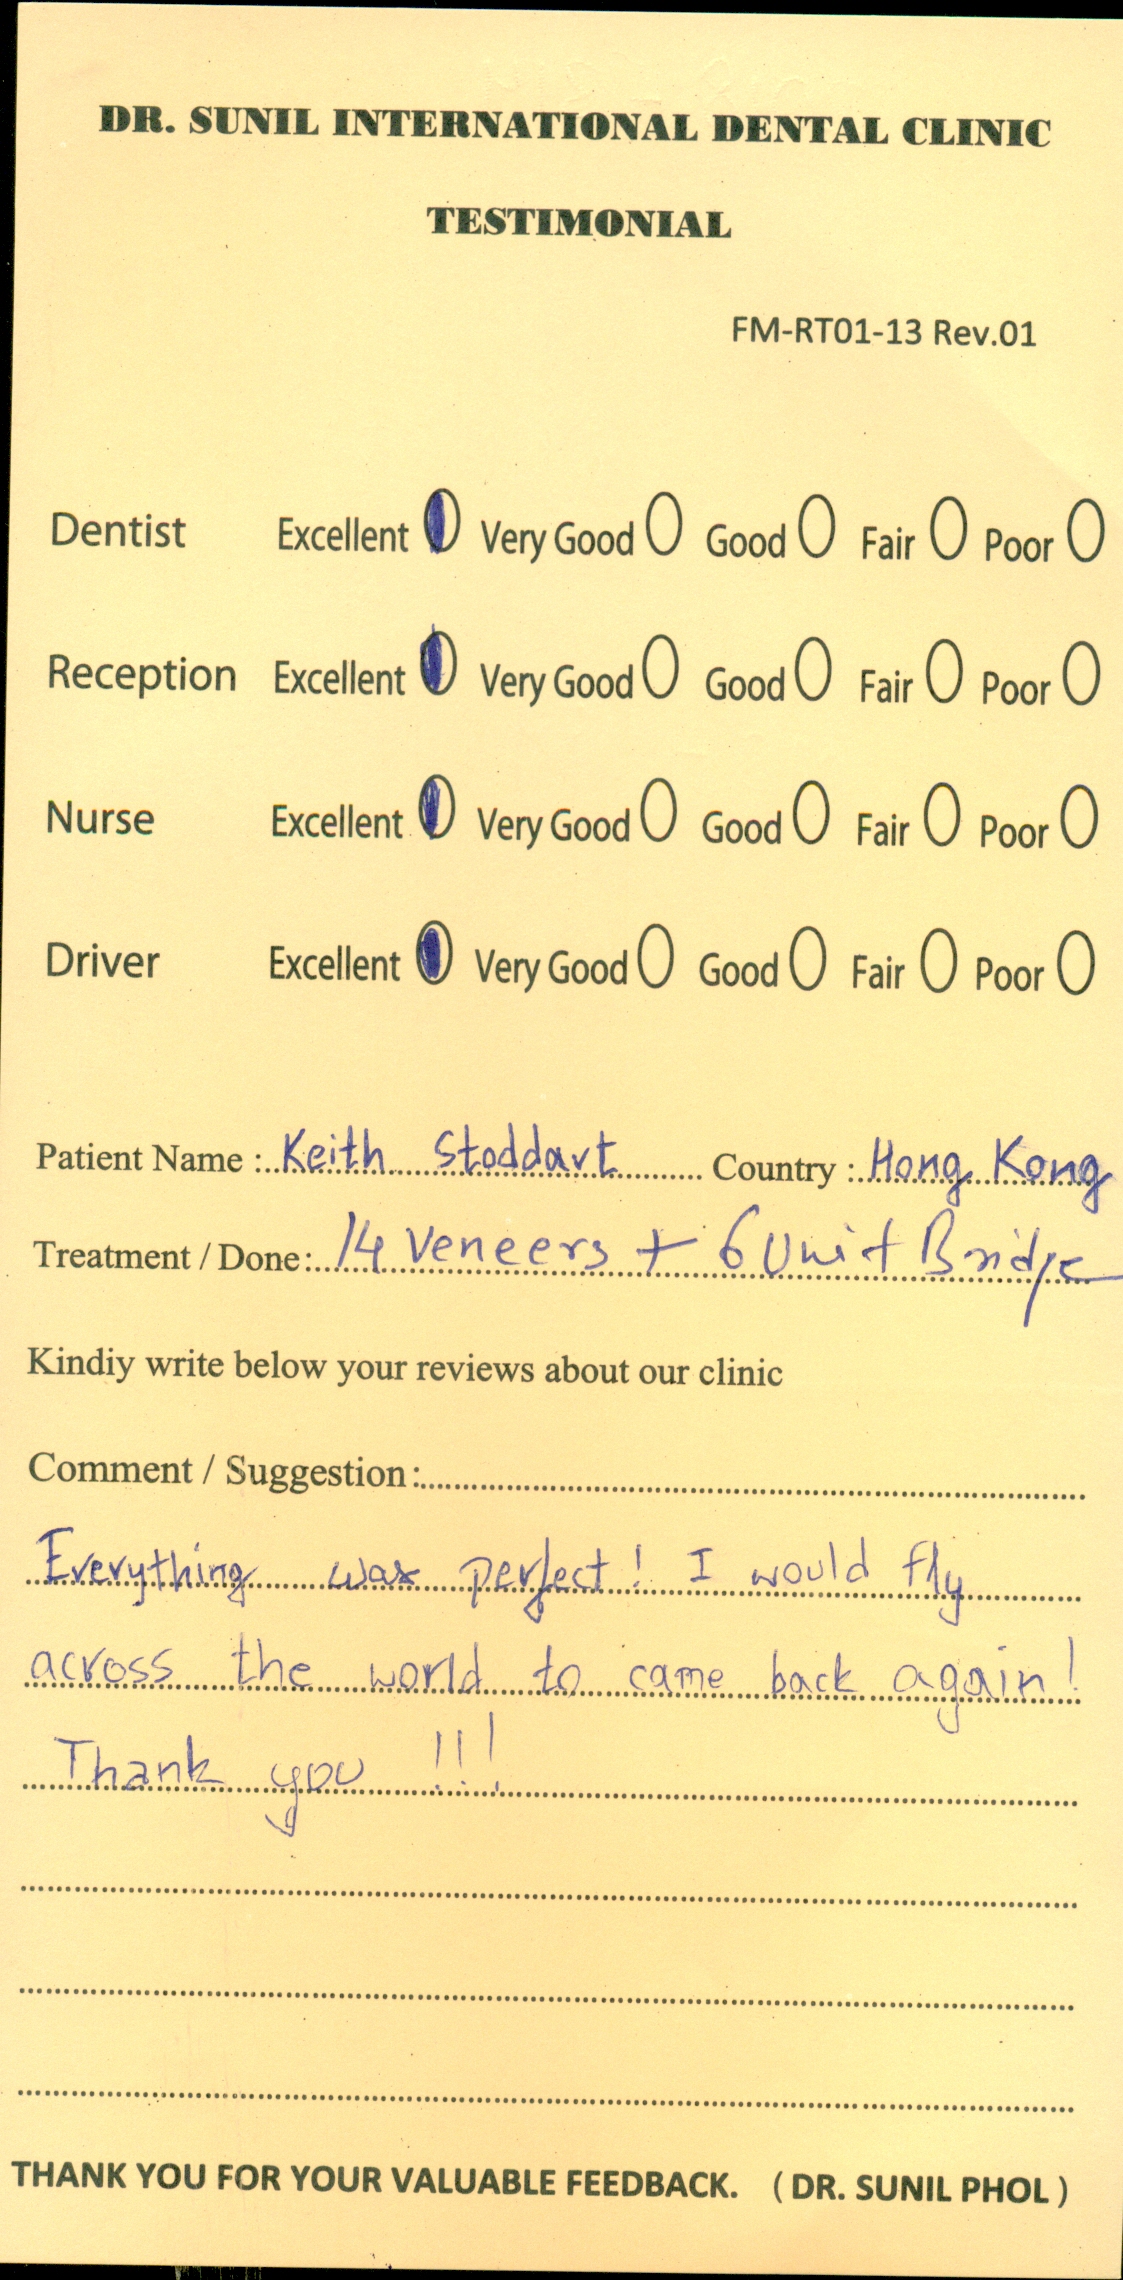 DR. SUNIL INTERNATIONAL DENTAL CLINIC
TESTIMONIAL
FM-RT01-13 Rev.01
Dentist Excellent Very Good Good Fair Poor
Reception Excellent Very Good Good Fair Poor
Nurse Excellent Very Good Good Fair Poor
Driver Excellent Very Good Good Fair Poor
Patient Name : Keith Stoddart Country : Hong Kong
Treatment / Done: 14 Veneers + 6 Unit Bridge
Kindiy write below your reviews about our clinic
Comment / Suggestion:
Everything was perfect! I would fly
across the world to came back again!
Thank you !!!
THANK YOU FOR YOUR VALUABLE FEEDBACK. ( DR. SUNIL PHOL )